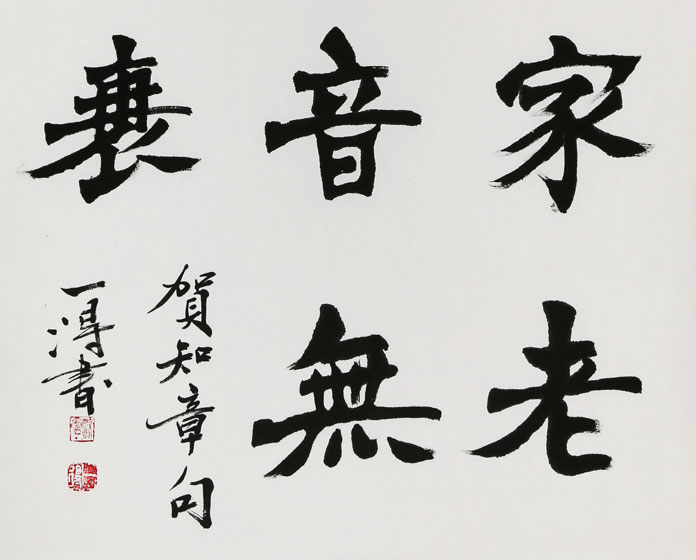 家老
音無
衰
賀知章句
一淂書